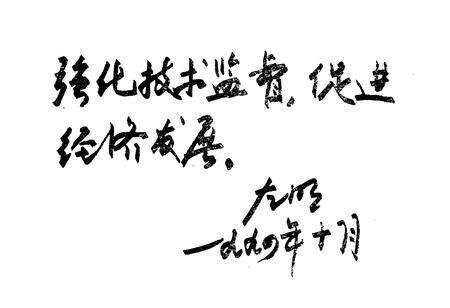 强化技术监督,促进
经济发展。
左明
一九九〇年十月